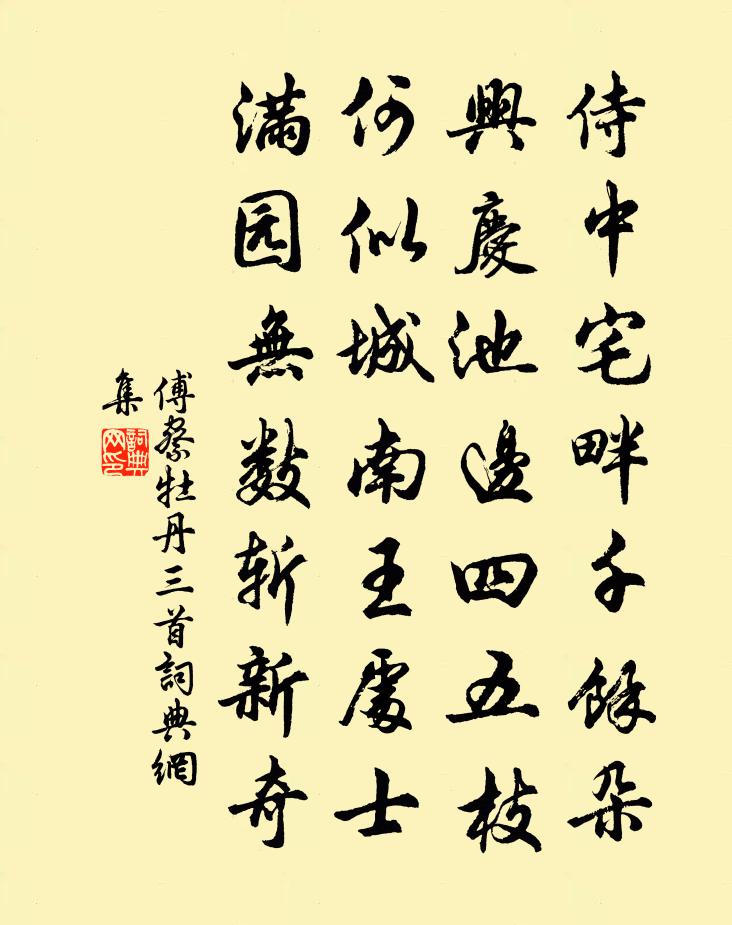 侍中宅畔千餘朶
興慶池邊四五枝
何似城南王處士
满园無数斩新奇
傅察牡丹三首詞典網
集
詞典
网印